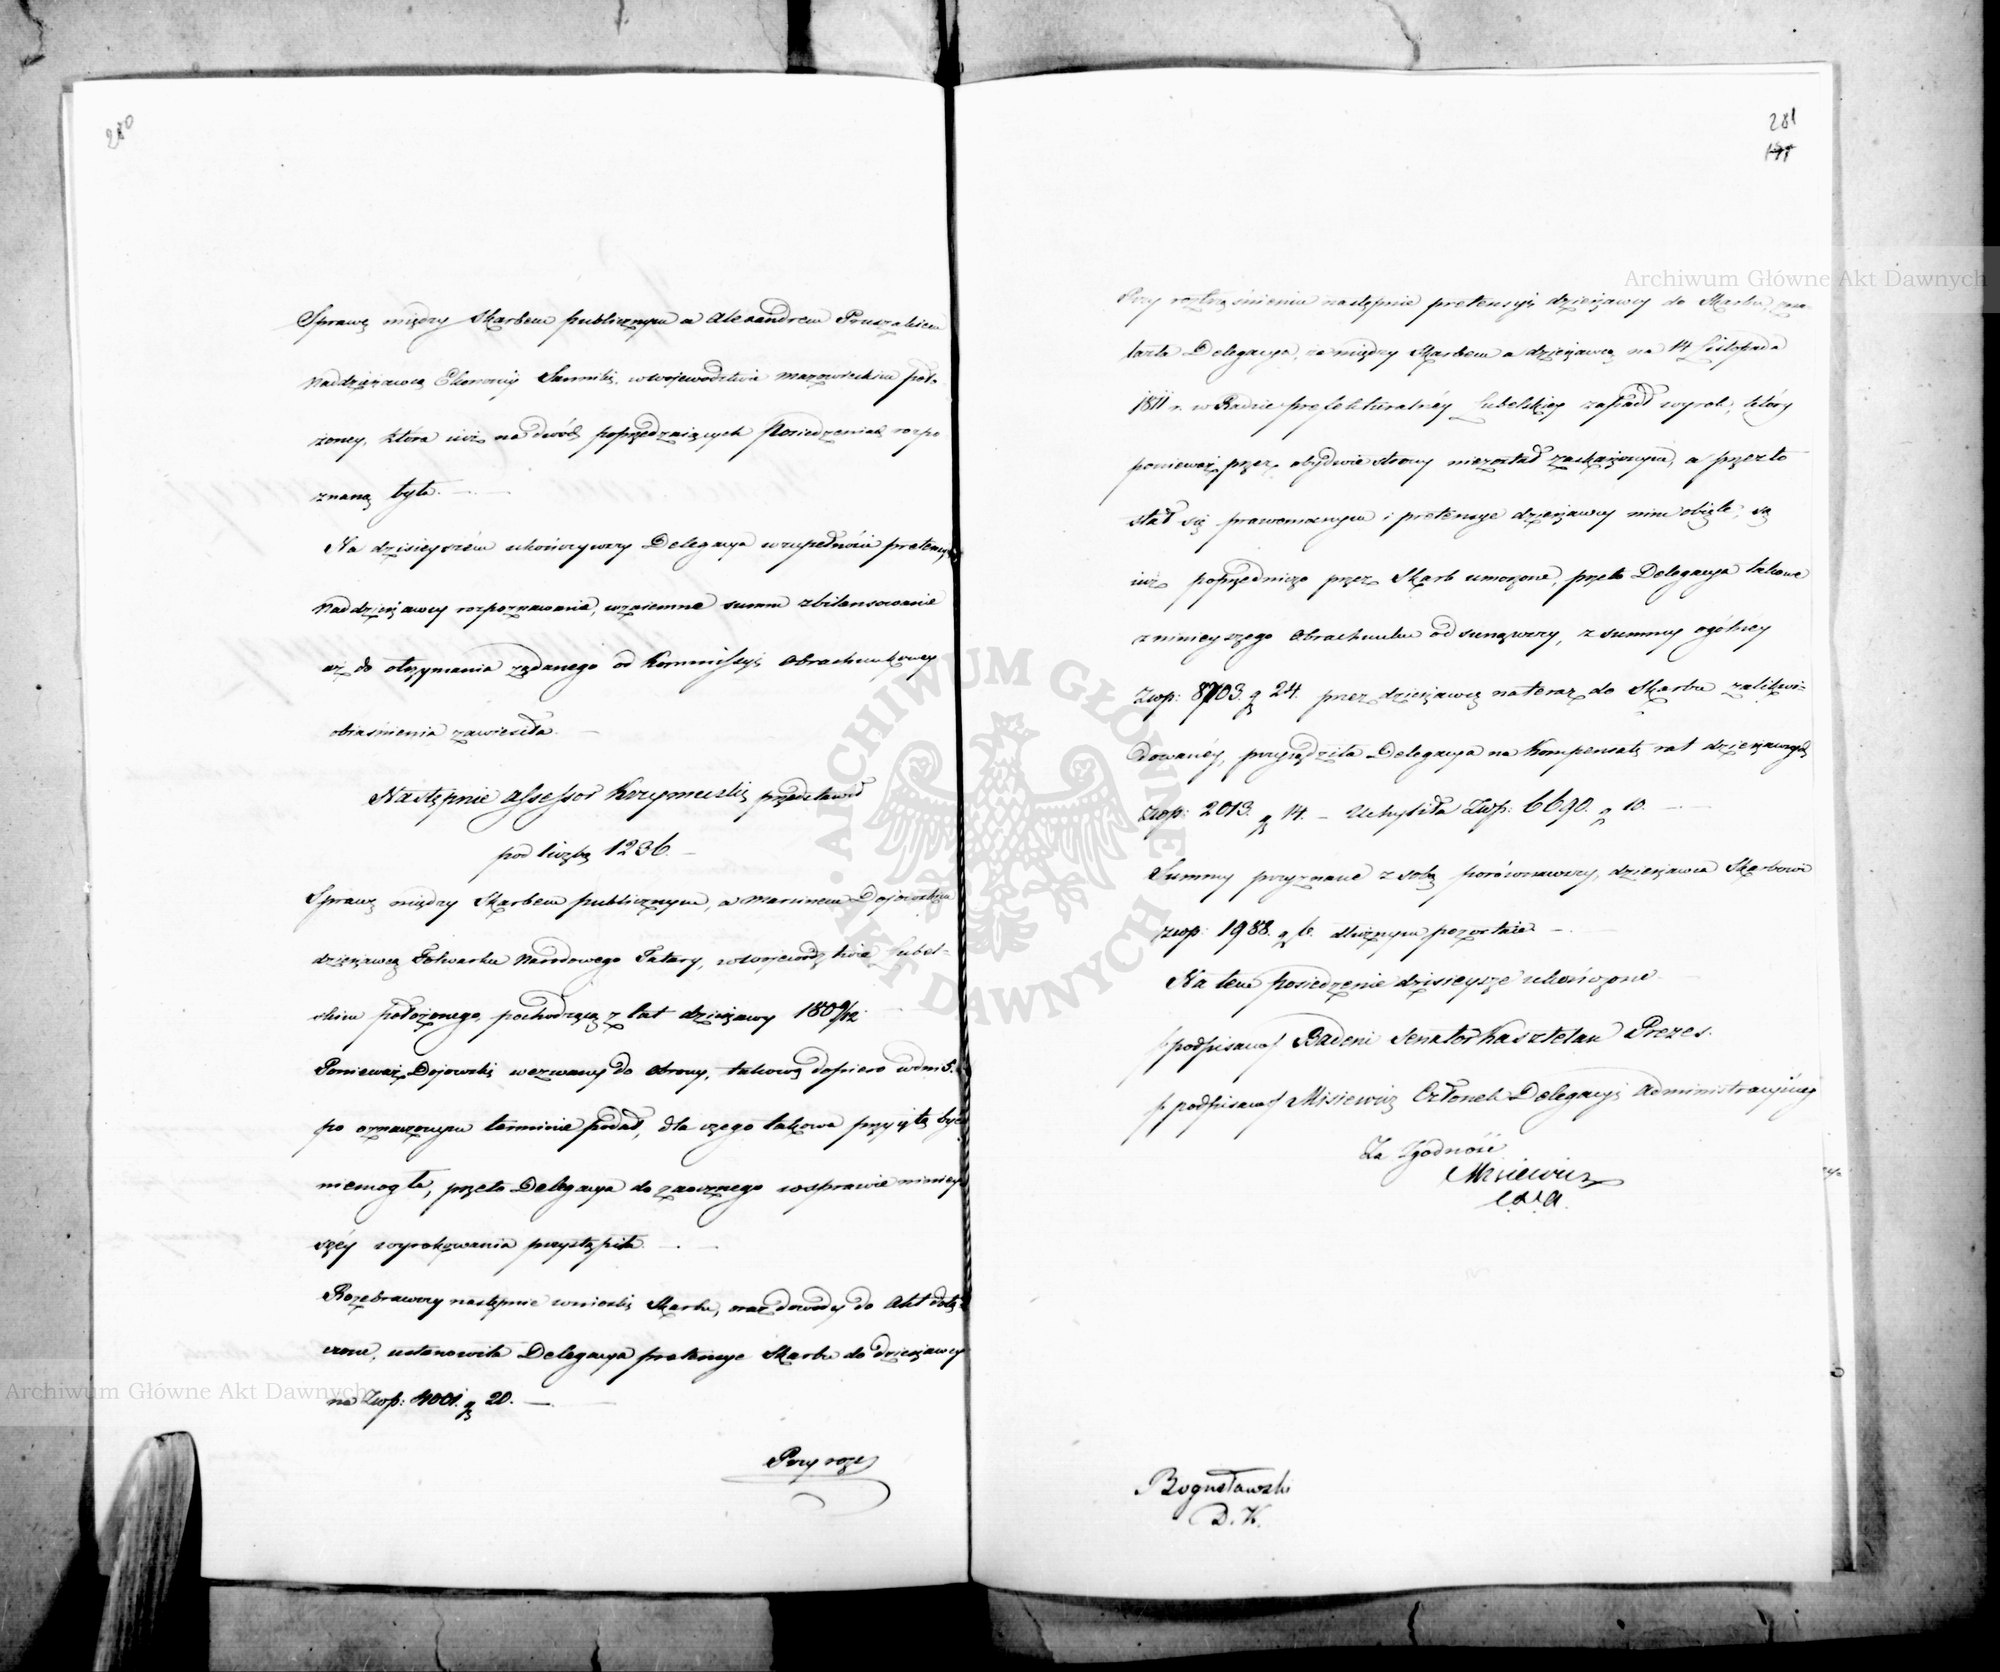 280
Sprawę między Skarbem publicznym a Alexandrem Pruszakiem
Naddzierżawcą Ekonomij Sanniki, w województwie mazowieckim poło-
żoney, która iuż na dwóch poprzedzaiących Posiedzeniach rozpo
znaną była. —
Na dzisieyszém ukończywszy Delegacya w zupełności pretensyi
Naddzierżawcy rozpoznawanie, wzaiemne summ zbilansowanie
aż do otrzymania żądanego od Kommissyi Obrachunkowey
obiaśnienia zawiesiła. —
Następnie Assessor Krzymuski przedstawił
pod liczbą 1236. —
Sprawę między Skarbem publicznym, a Marcinem Dojowskim
dzierżawcą Folwarku Narodowego Tatary, w województwie Lubel-
skim położonego, pochodzącą z lat dzierżawy 1809/12
Ponieważ Dojowski wezwany do obrony, takową dopiero w dni 5.
po oznaczonym terminie podał, dla czego takowa przyiętą być
niemogła, przeto Delegacya do zaocznego w sprawie niniey
széy wyrokowania przystąpiła. —
Rozebrawszy następnie wnioski Skarbu, oraz dowody do Akt dołą
czone, ustanowiła Delegacya pretensye Skarbu do dzierżawcy
na Zwp: 4001. g 20. —
Przy rozt
281
Przy roztrząśnieniu następnie pretensyi dzierżawcy do Skarbu, zna-
lazła Delegacya, że między Skarbem a dzierżawcą na 14 Listopada
1811 r. w Radzie prefekturalnéy Lubelskiey zapadł wyrok, który
ponieważ przez obydwie strony niezostał zaskarżonym, a przez to
stał się prawomocnym i pretensye dzierżawcy nim obięte, są
iuż poprzedniczo przez Skarb umorzone, przeto Delegacya takowe
z ninieyszego Obrachunku odsunąwszy, z summy ogólney
Zwp: 8703. g 24. przez dzierżawcę na teraz do Skarbu zalikwi-
dowanéy, przysądziła Delegacya na Kompensatę rat dzierżawnych
Zwp: 2013. g 14. — Uchyliła Zwp: 6690. g 10. —
Summy przyznane z sobą porównawszy, dzierżawca Skarbowi
zwp: 1988. g 6. dłużnym pozostaie —
Na tem posiedzenie dzisieysze ukończone —
/podpisano/ Badeni Senator Kasztelan Prezes.
/podpisano/ Misiewicz Członek Delegacyi Administracyiney
Za Zgodność
Misiewicz
C.D.A.
Bogusławski
D. K.
Archiwum Główne Akt Dawnych
Archiwum Główne Akt Dawnych
ARCHIWUM GŁÓWNE AKT DAWNYCH